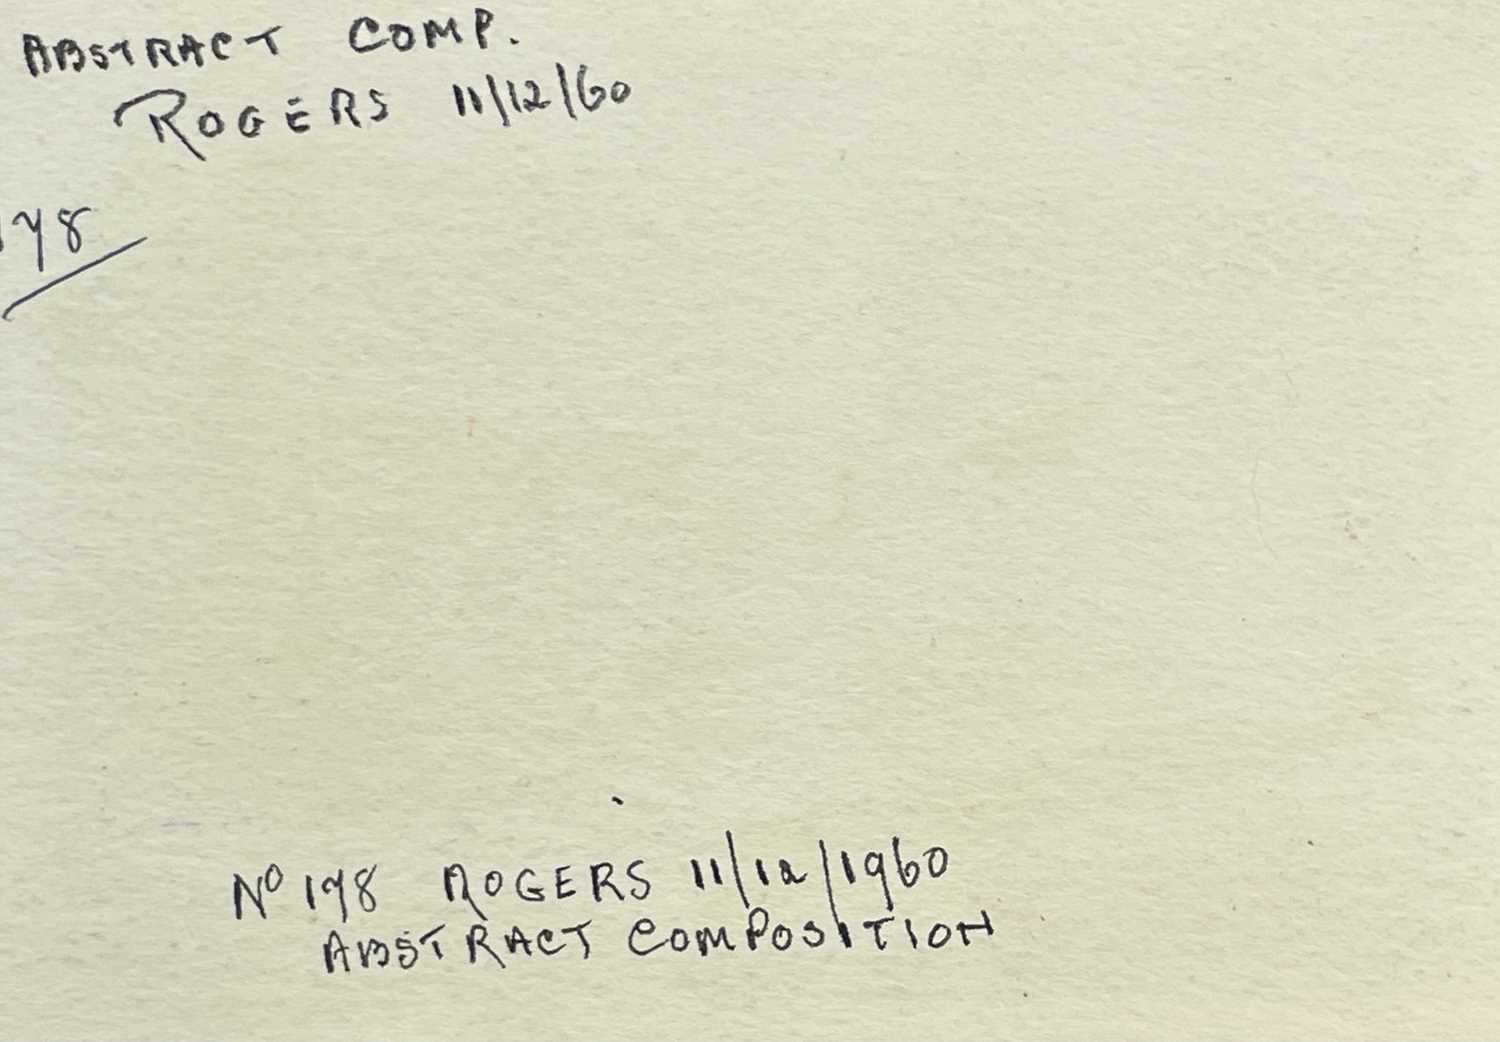 ABSTRACT COMP.
ROGERS 11/12/60
178
Nº 178 ROGERS 11/12/1960
ABSTRACT COMPOSITION